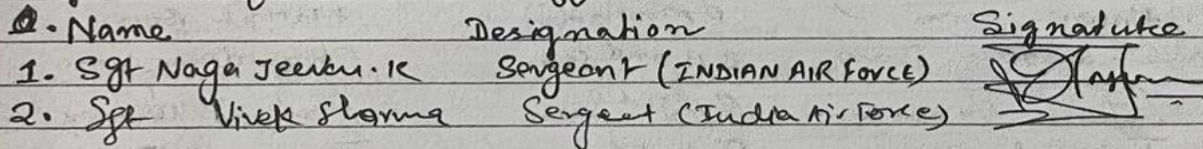 Name Designation Signature
1. Sgt Naga Jeevan.K Sergeant (INDIAN AIR FORCE)
2. Sgt Vivek Sharma Sergeet (India Air Force)